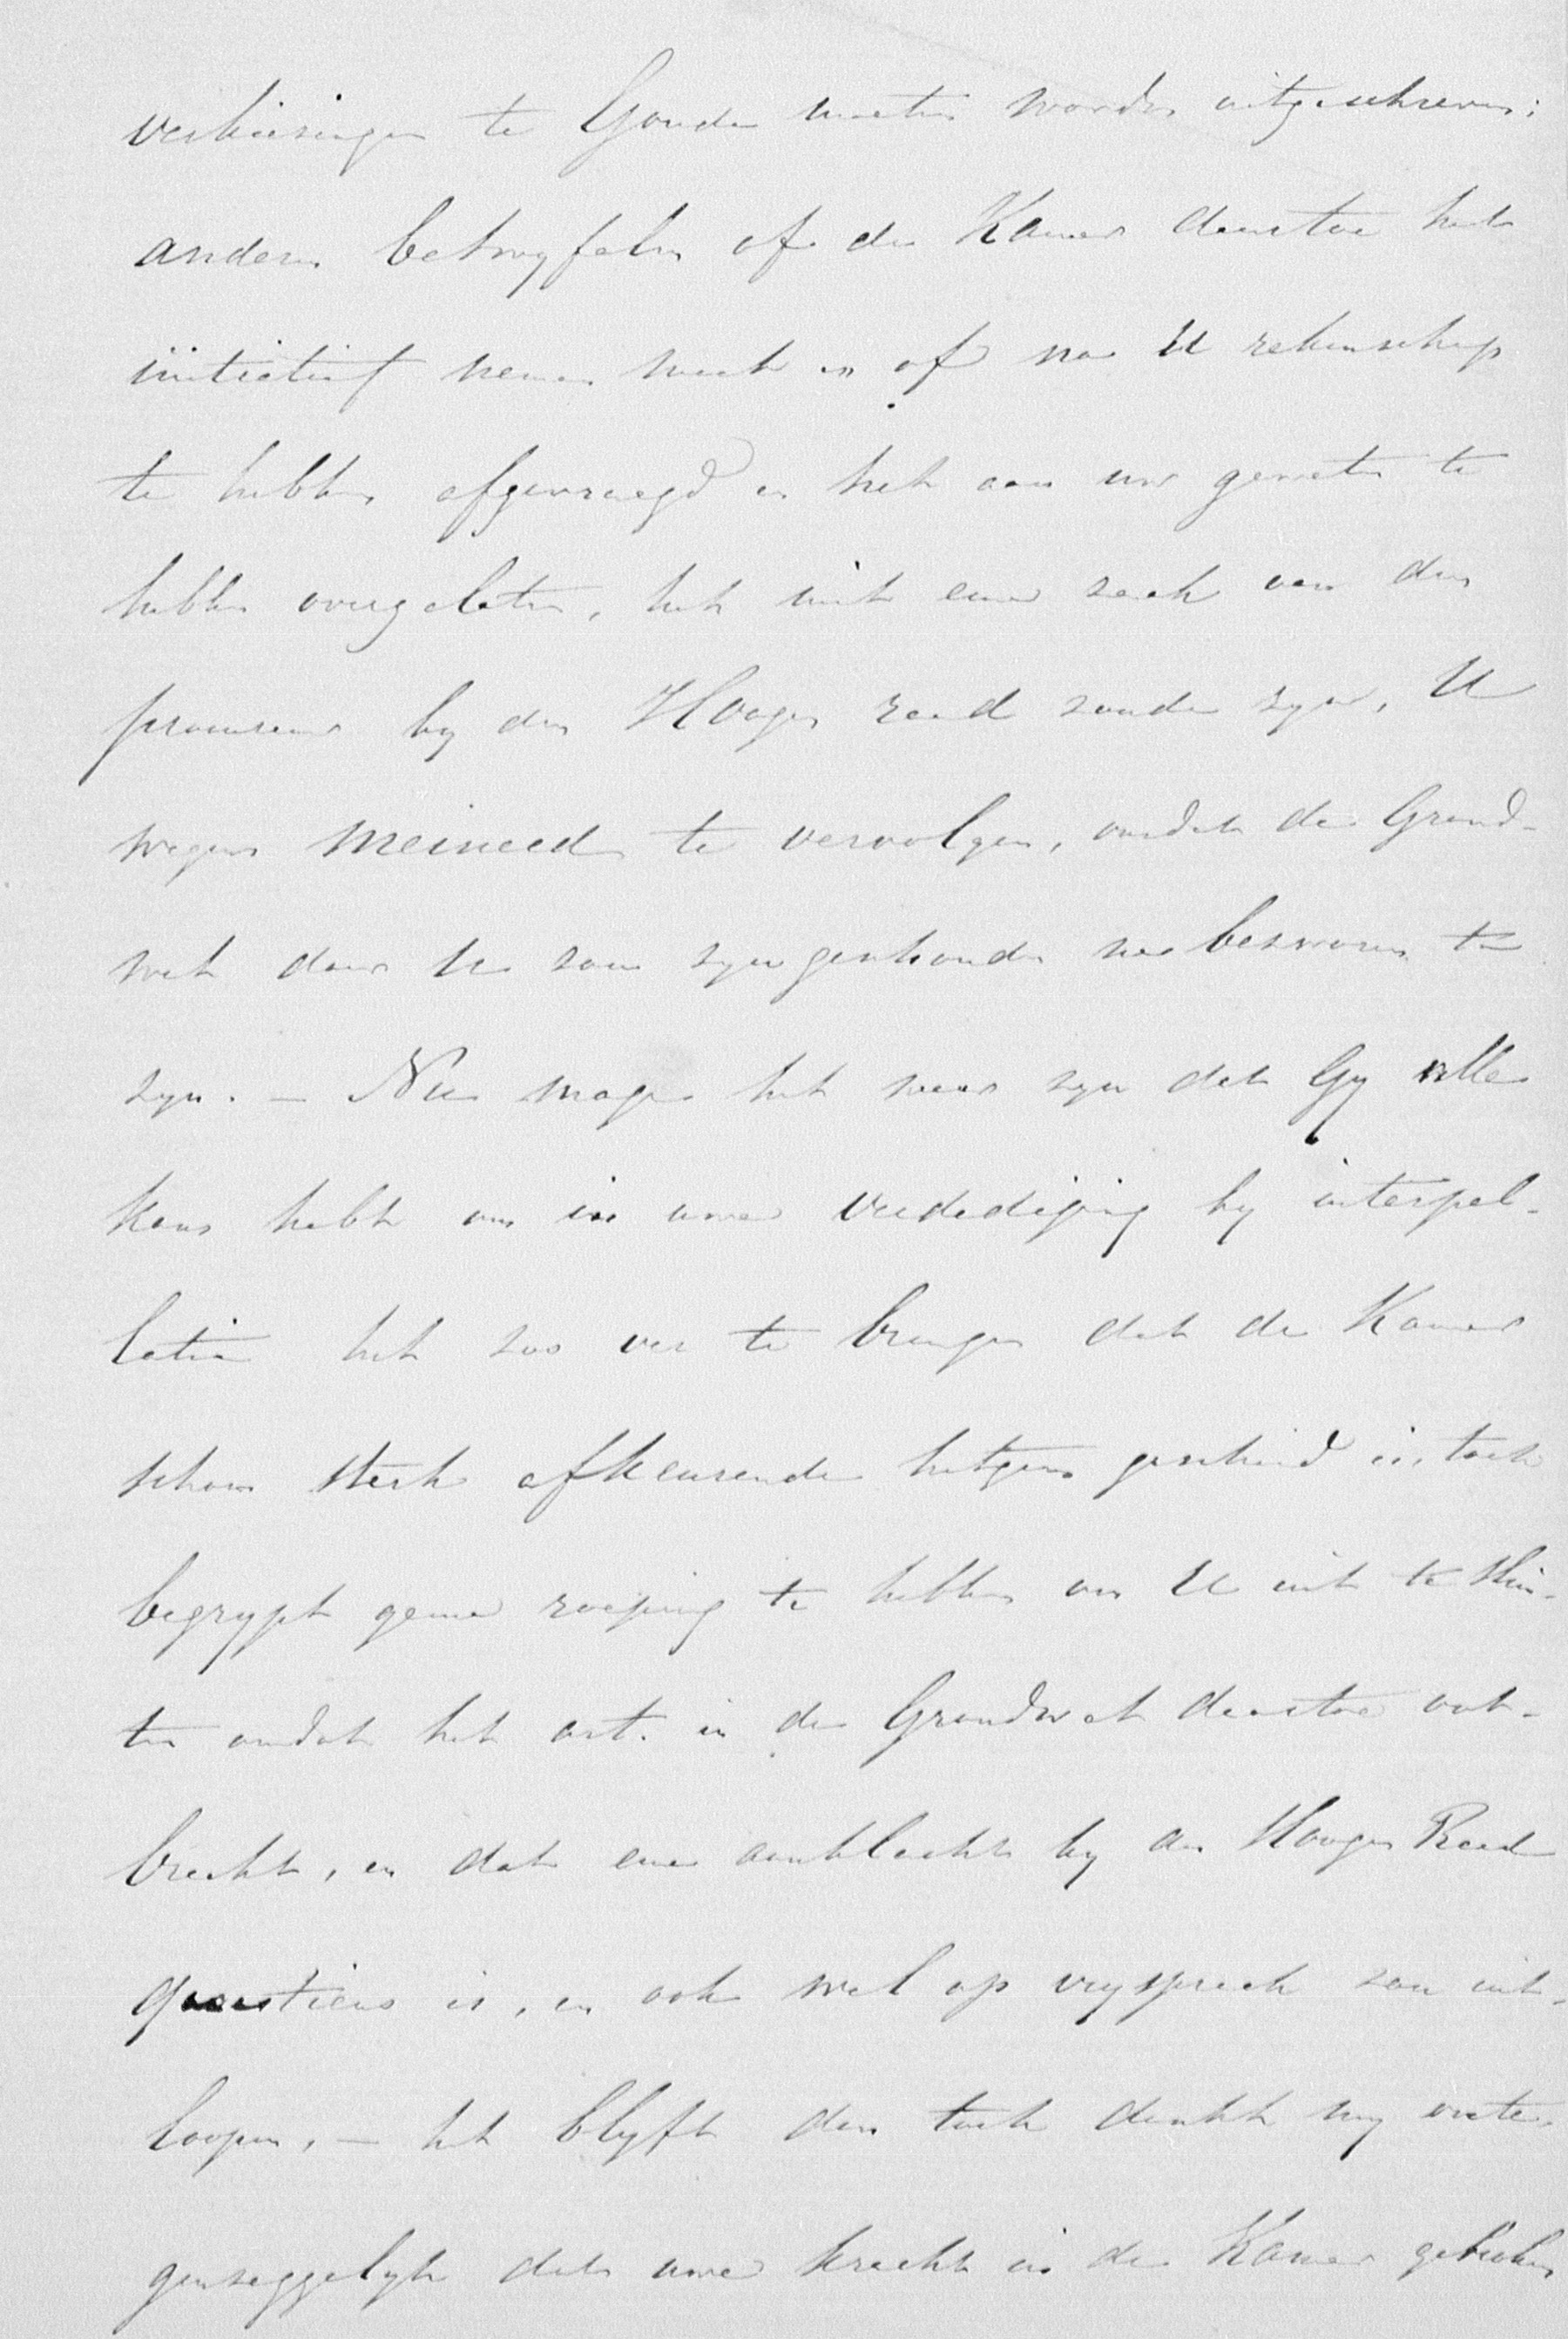 verkiezingen te Gouda moeten worden uitgeschreven;
anderen betwyfelen of de Kamer daartoe het
initiatief nemen moet en of na U rekenschap
te hebben afgevraegd en het aan uw geweten te
hebben overgelaten, het niet eene zaak van den
procureur by den Hoogen raad zoude zyn, U
wegens meineed te vervolgen, omdat de Grond-
wet door U zou zyn geschonden na bezworen te
zyn. — Nu moge het waar zyn dat Gy alle
kans hebt om in uwe verdediging by interpel-
latie het zoo ver te brengen dat de Kamer
schoon sterk afkeurende hetgeen geschied is, toch
begrypt geene roeping te hebben om U uit te slui-
ten omdat het art. in de Grondwet daartoe ont-
breekt, en dat eene aanklacht by den Hoogen Raad
quaestieus is, en ook wel op vryspraak zou uit-
loopen, — het blyft dan toch dunkt my onte-
genzeggelyk dat uwe kracht in de Kamer gebroken